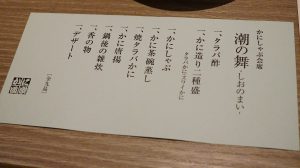 かにしゃぶ会席
潮の舞 -しおのまい-
一、タラバ酢
一、かに造り二種盛
タラバかにズワイかに
一、かにしゃぶ
一、かに茶碗蒸し
一、焼タラバかに
一、かに唐揚
一、鍋後の雑炊
一、香の物
一、デザート